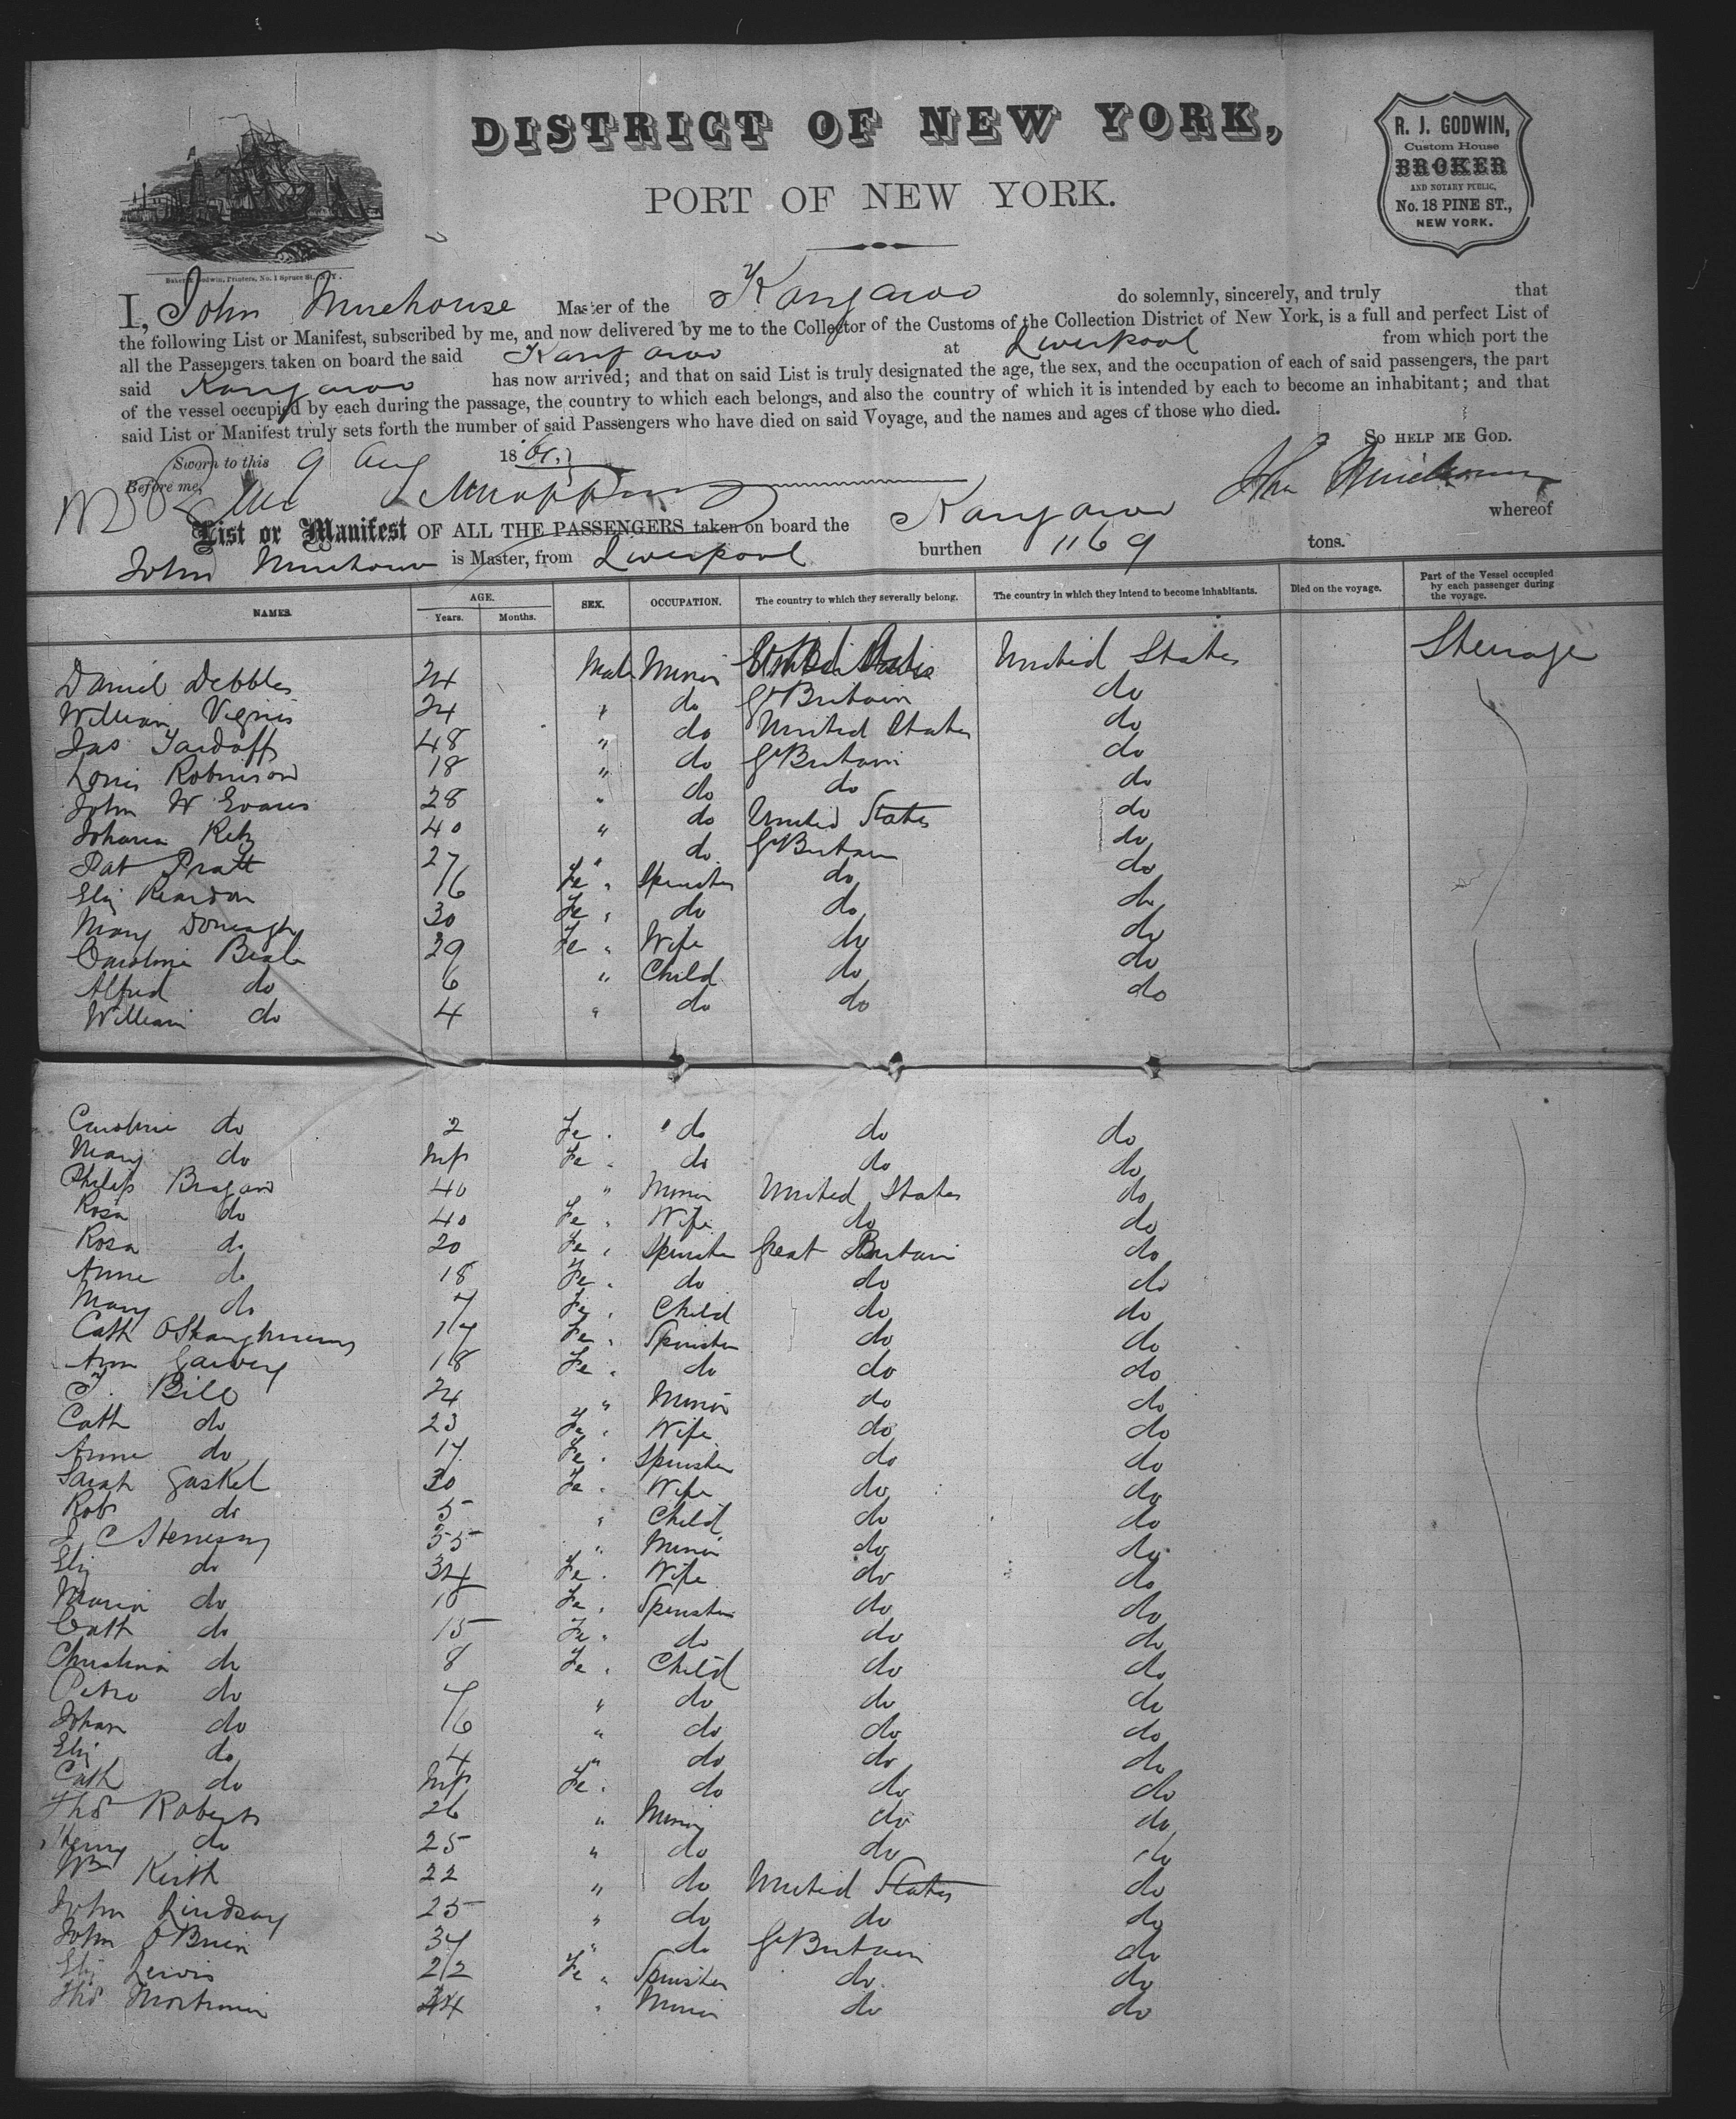 DISTRICT OF NEW YORK,
PORT OF NEW YORK.
R. J. GODWIN,
Custom House
BROKER
AND NOTARY PUBLIC,
No. 18 PINE ST.,
NEW YORK.
Baker & Godwin, Printers, No. 1 Spruce St., N.Y.
I, John Muirhouse Master of the Kangaroo do solemnly, sincerely, and truly that
the following List or Manifest, subscribed by me, and now delivered by me to the Collector of the Customs of the Collection District of New York, is a full and perfect List of
all the Passengers taken on board the said Kangaroo at Liverpool from which port the
said Kangaroo has now arrived; and that on said List is truly designated the age, the sex, and the occupation of each of said passengers, the part
of the vessel occupied by each during the passage, the country to which each belongs, and also the country of which it is intended by each to become an inhabitant; and that
said List or Manifest truly sets forth the number of said Passengers who have died on said Voyage, and the names and ages of those who died.
SO HELP ME GOD.
Sworn to this 9 Aug 1861
Before me,
List or Manifest OF ALL THE PASSENGERS taken on board the Kangaroo whereof
John Muirhouse is Master, from Liverpool burthen 1169 tons.
NAMES. AGE. Years. Months. SEX. OCCUPATION. The country to which they severally belong. The country in which they intend to become inhabitants. Died on the voyage. Part of the Vessel occupied by each passenger during the voyage.
Daniel Debbles 24 Male Minor United States Steerage
William 24 " do Gt Britain do
Jas 48 " do United States do
Louis Robinson 18 " do Gt Britain do
John W Evans 28 " do do do
Johann 40 " do United States do
Pat Pratt 27 " do Gt Britain do
Eliz Reardon 16 Fe " Spinster do do
Mary 30 Fe " do do do
Caroline Beale 29 Fe " Wife do do
Alfred do 6 " Child do do
William do 4 " do do do
Caroline do 2 Fe " do do do
Mary do Inft Fe " do do do
Philip 40 " Minor United States do
Rosa do 40 Fe " Wife do do
Rosa do 20 Fe " Spinster Great Britain do
Anne do 18 Fe " do do do
Mary do 7 Fe " Child do do
Cath OShaughnessy 17 Fe " Spinster do do
Ann Garvey 18 Fe " do do do
T. Bill 24 " Minor do do
Cath do 23 Fe " Wife do do
Anne do 17 Fe " Spinster do do
Sarah Gaskel 30 Fe " Wife do do
Robt do 5 " Child do do
J C 35 " Minor do do
Eliz do 34 Fe " Wife do do
Maria do 18 Fe " Spinster do do
Cath do 15 Fe " do do do
Christina do 8 Fe " Child do do
Petro do 7 " do do do
Johan do 6 " do do do
Eliz do 4 " do do do
Cath do Inft Fe " do do do
Thos Roberts 26 " Minor do do
Henry do 25 " do do do
Wm Keith 22 " do United States do
John Lindsay 25 " do do do
John OBrien 37 " do Gt Britain do
Eliz Lewis 22 Fe " Spinster do do
Thos Mortimer 24 " Minor do do